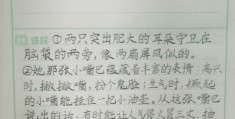 ①两只突出肥大的耳朵守卫在
脑袋的两旁，像两扇屏风似的。
②她那张小嘴巴蕴藏着丰富的表情：高兴
时，撇撇嘴，扮个鬼脸；生气时，撅起
的小嘴能挂住一把小油壶。从这张嘴巴
说出的话，有时能让人气得火冒三丈，抽